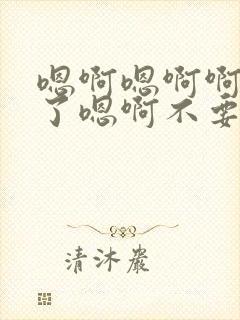 嗯啊嗯啊啊
了嗯啊不要
清沐嚴